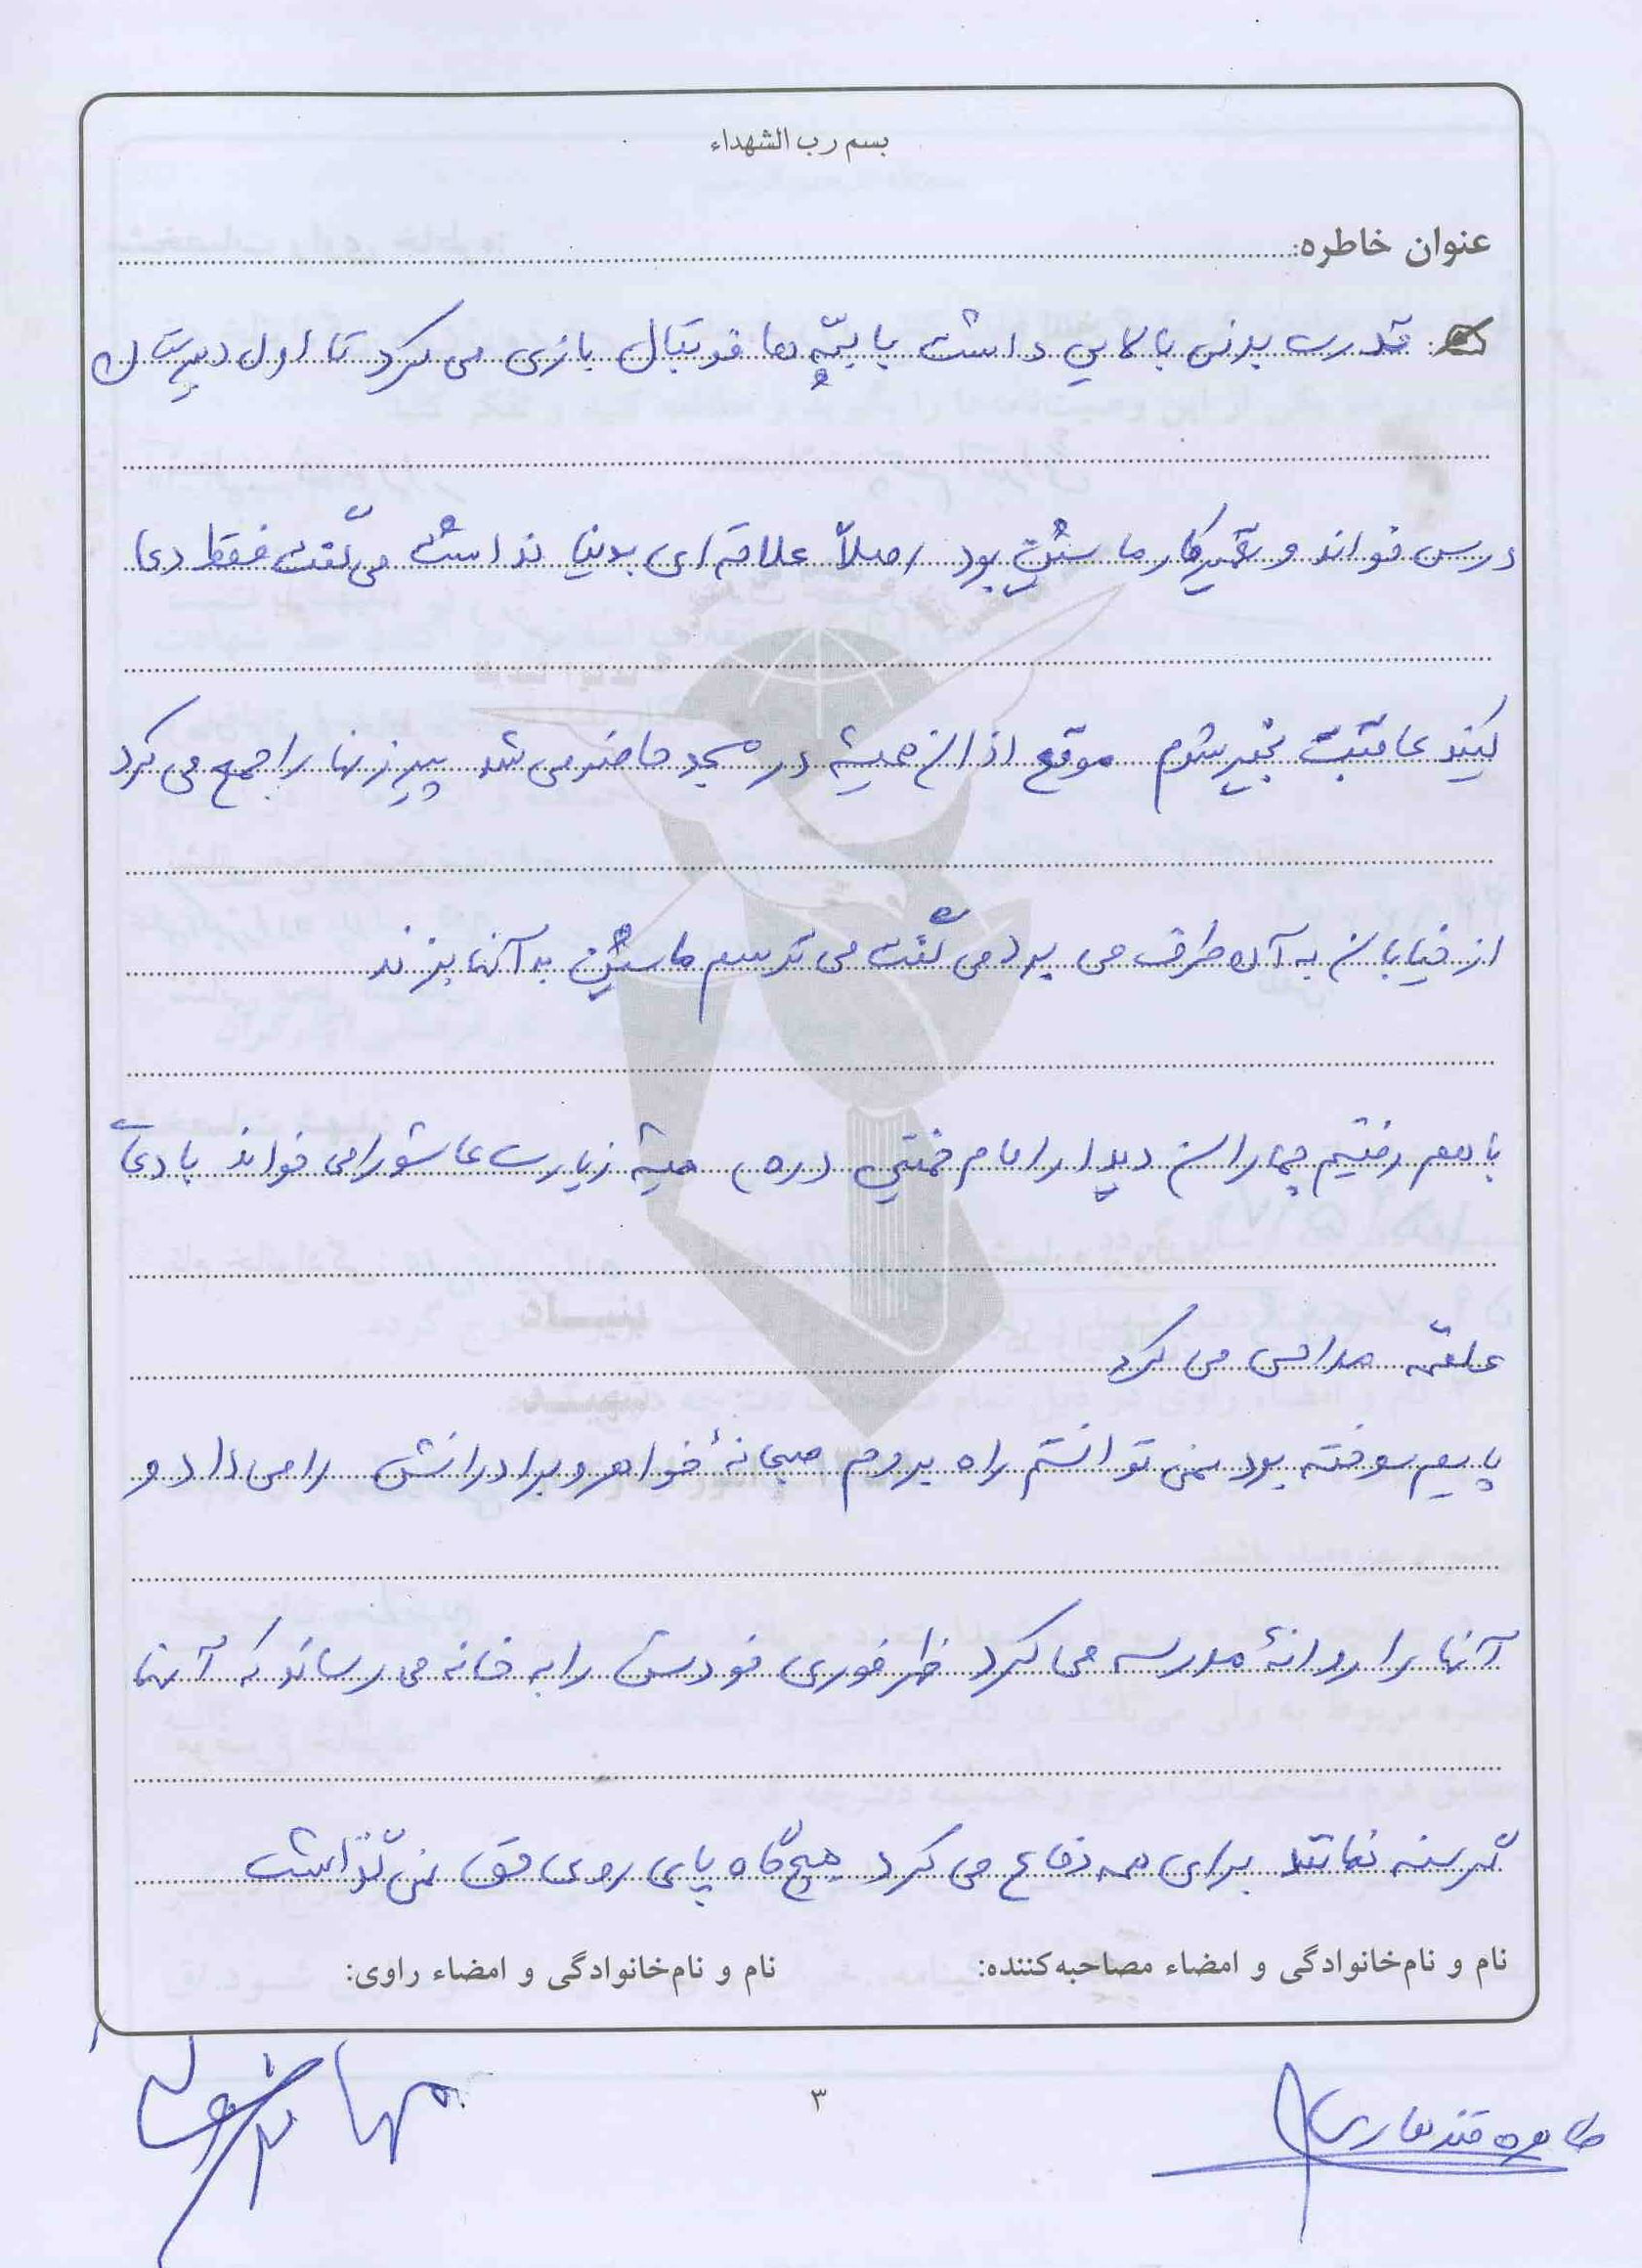 بسم رب الشهداء
عنوان خاطره:
قدرت بدنی بالایی داشت با بچه ها فوتبال بازی می کرد تا اول دبیرستان
درس خواند و تعمیرکار ماشین بود اصلاً علاقه ای بدنیا نداشت می گفت فقط دعا
کنید عاقبت بخیر شوم موقع اذان همیشه در مسجد حاضر می شد پیرزنها را جمع می کرد
از خیابان به آن طرف می برد می گفت می ترسم ماشین به آنها بزند
با هم رفتیم جماران دیدار امام خمینی (ره) همیشه زیارت عاشورا می خواند با دعای
علقمه مداحی می کرد
پایم سوخته بود نمی توانستم راه بروم صبحانۀ خواهر و برادرانش را می داد و
آنها را روانۀ مدرسه می کرد ظهر فوری خودش را به خانه می رساند که آنها
گرسنه نمانند برای همه دفاع می کرد هیچگاه پای روی حق نمی گذاشت
نام و نام‌خانوادگی و امضاء مصاحبه‌کننده: نام و نام‌خانوادگی و امضاء راوی:
طاهره قندهاری
۳